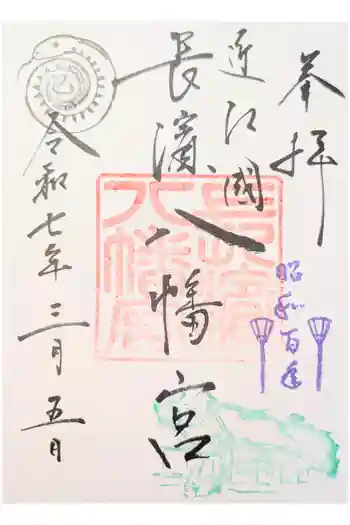 奉拝
近江國
長濱八幡宮
令和七年三月五日
巳
昭和百年
長浜八幡宮